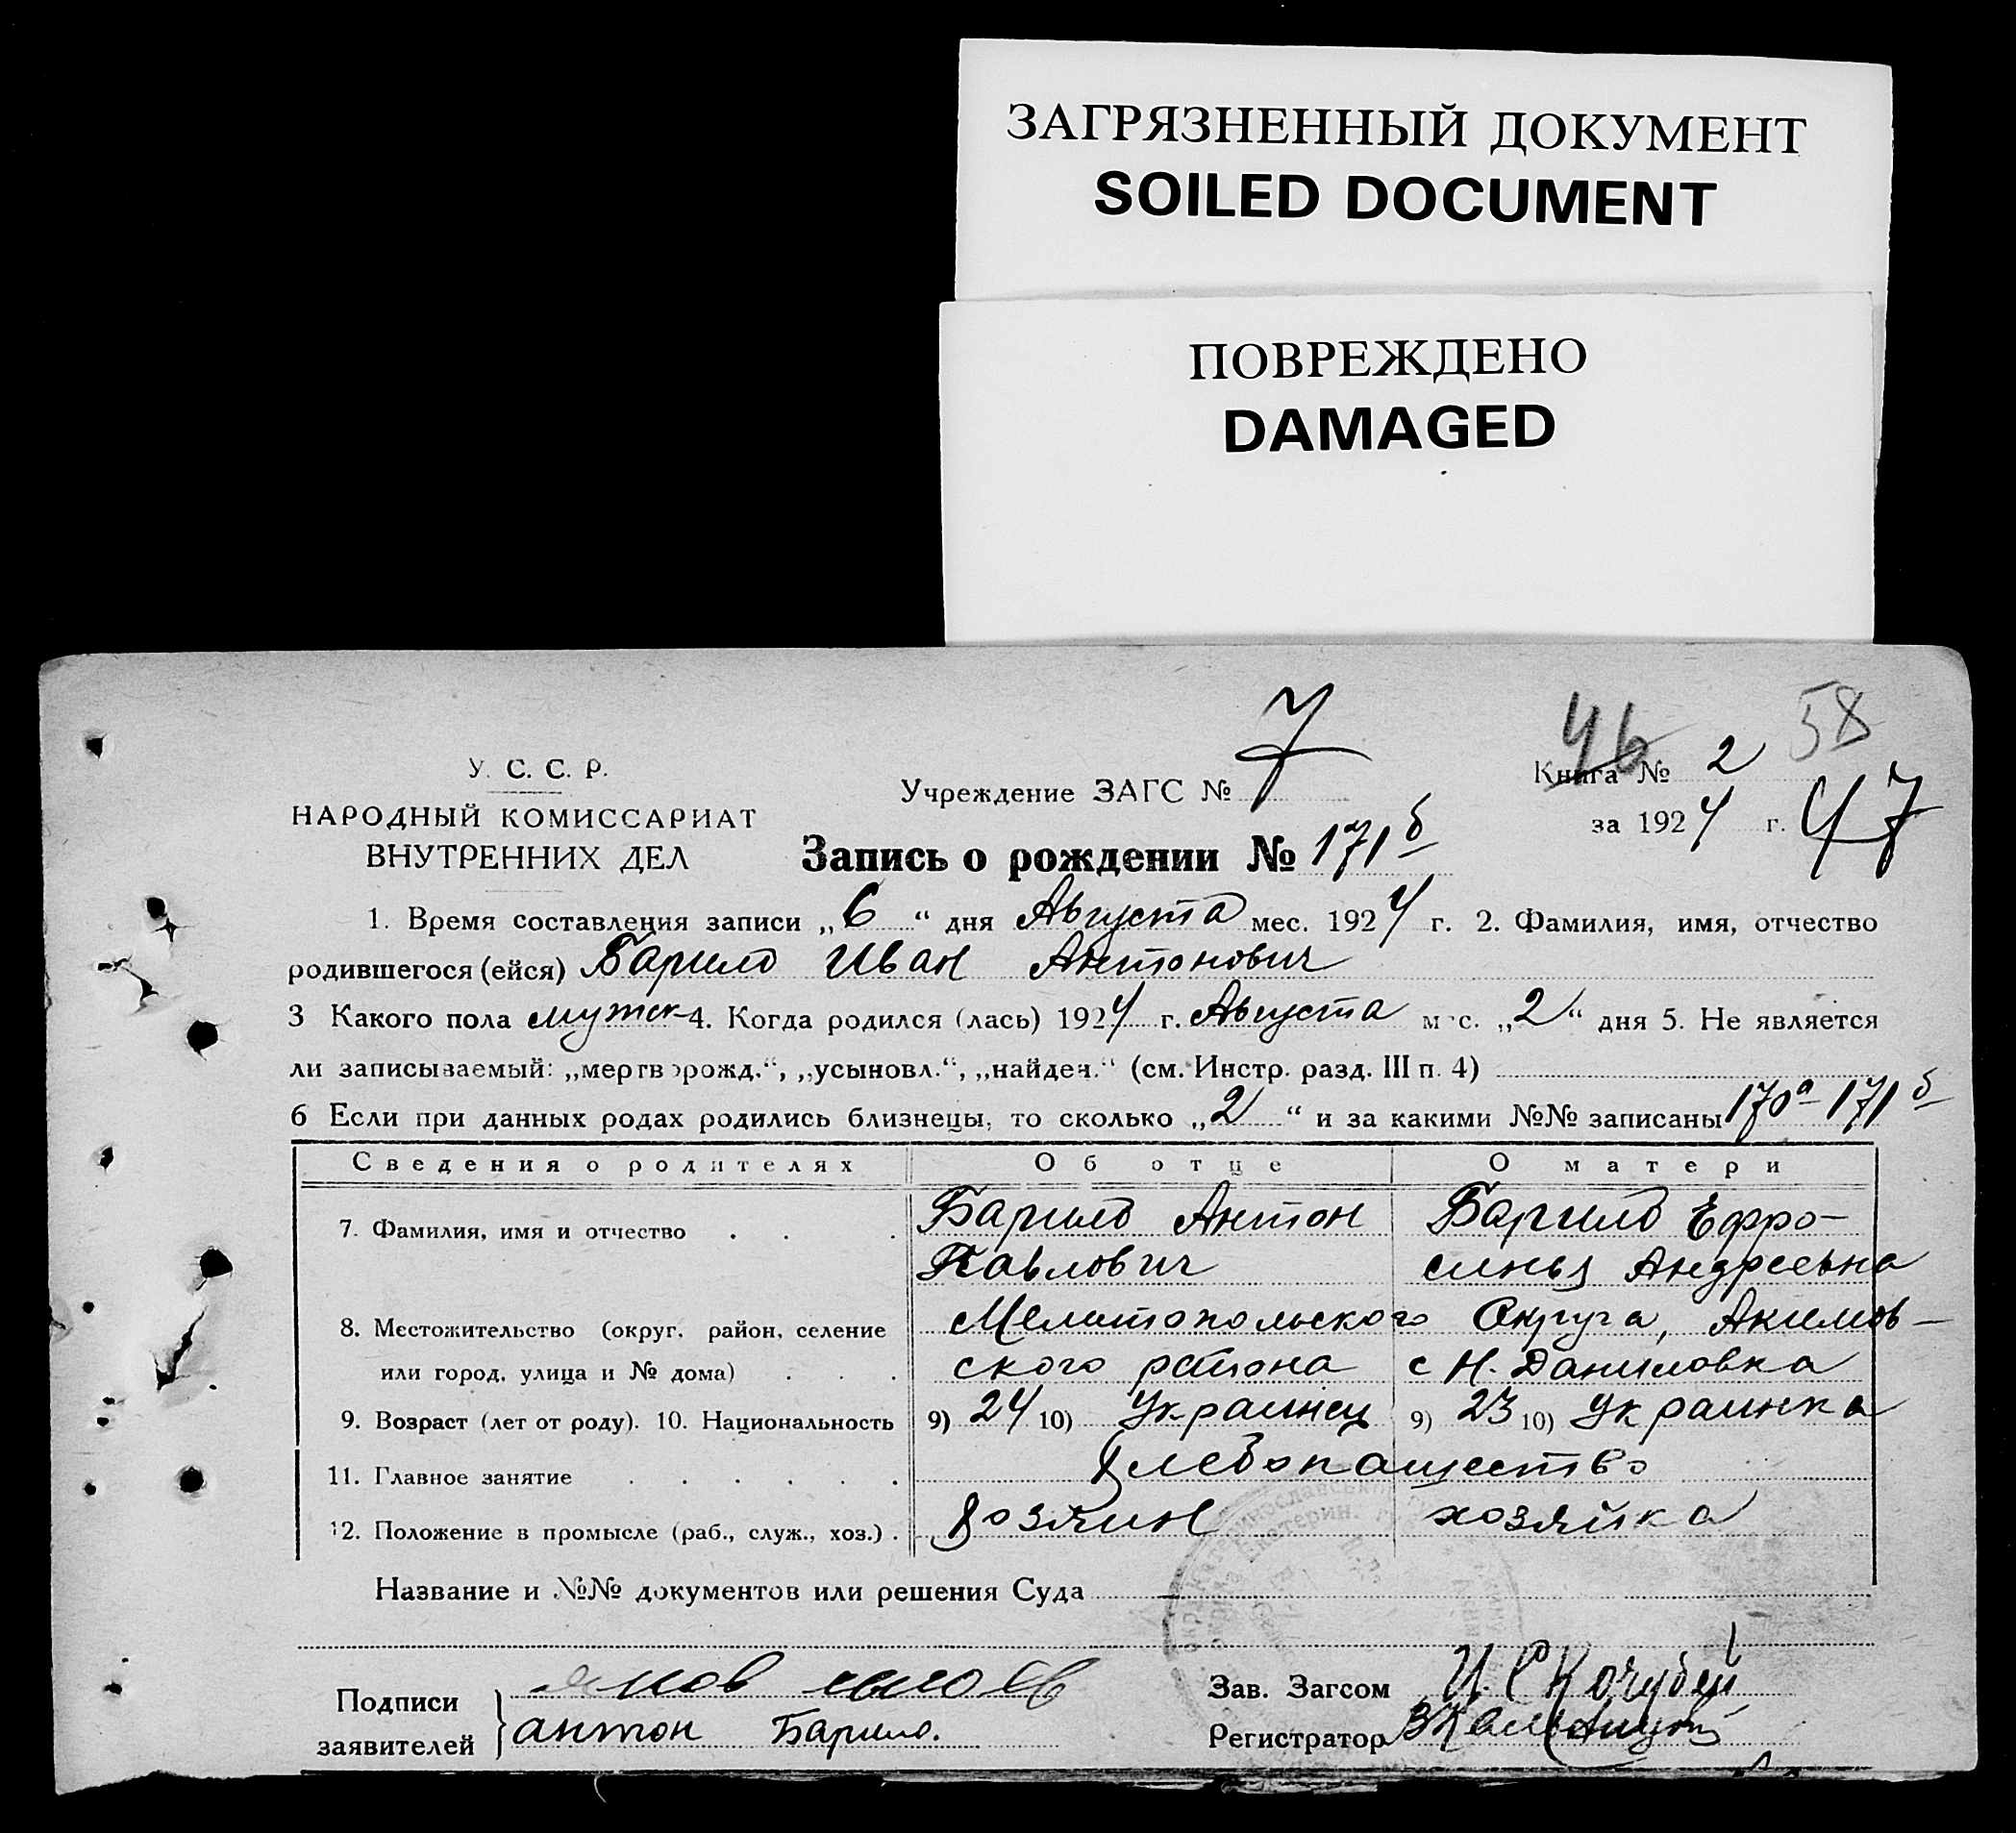 ЗАГРЯЗНЕННЫЙ ДОКУМЕНТ
SOILED DOCUMENT
ПОВРЕЖДЕНО
DAMAGED
46 58
У. С. С. Р.
НАРОДНЫЙ КОМИССАРИАТ
ВНУТРЕННИХ ДЕЛ
Учреждение ЗАГС № 7
Книга № 2
за 1924 г. 47
Запись о рождении № 171б
1. Время составления записи „6“ дня Августа мес. 1924 г. 2. Фамилия, имя, отчество
родившегося (ейся) Барило Иван Антонович
3 Какого пола мужск 4. Когда родился (лась) 1924 г. Августа мес. „2“ дня 5. Не является
ли записываемый: „мертворожд.“, „усыновл.“, „найден.“ (см. Инстр. разд. III п. 4)
6 Если при данных родах родились близнецы, то сколько „2“ и за какими №№ записаны 170а-171б
Сведения о родителях Об отце О матери
7. Фамилия, имя и отчество . . . Барило Антон Барило Ефро-
Павлович синья Андреевна
8. Местожительство (округ, район, селение Мелитопольского Округа, Акимов-
или город, улица и № дома) . . . ского района с Н. Даниловка
9. Возраст (лет от роду). 10. Национальность 9) 24 10) Украинец 9) 23 10) Украинка
11. Главное занятие . . . . . . Хлебопашество
12. Положение в промысле (раб., служ., хоз.) . хозяин хозяйка
Название и №№ документов или решения Суда
Подписи
заявителей
антон Барило.
Зав. Загсом И. С Кочубей
Регистратор